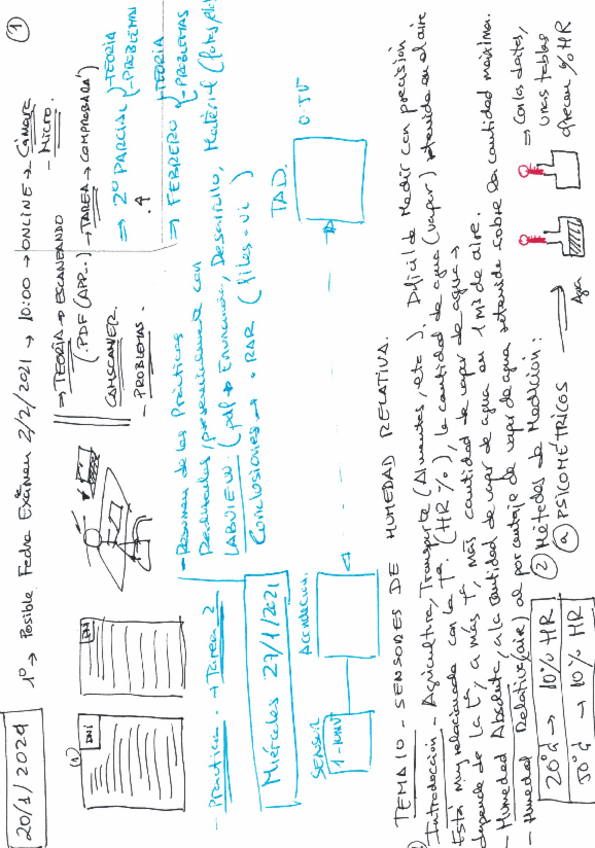 20/1/2021
①
1º → Posible Fecha Exámen 2/2/2021 → 10:00 → ONLINE → Cámara
- Micro.
(1)
DNI
DNI
→ TEORÍA → ESCANEANDO
(.PDF (APP...) → TAREA → COMPROBADA)
CAMSCANNER.
- PROBLEMAS.
⇒ 2º PARCIAL
- TEORÍA
- PROBLEMAS
⇒ FEBRERO
- TEORÍA
- PROBLEMAS
- Prácticas. → Tarea 2
- Resumen de las Prácticas
Realizadas, presencialmente con
LABVIEW. (pdf → Enunciado, Desarrollo, Material (fotos,
Conclusiones → .RAR (files - vi)
Miércoles 27/1/2021
SENSOR
Acondicion.
TAD.
TEMA 10 - SENSORES DE HUMEDAD RELATIVA.
Introducción - Agricultura, Transporte (Alimentos, etc). Difícil de Medir con precisión
Está muy relacionada con la Tª. (HR %) la cantidad de agua (vapor) retenida en el aire
depende de la tª, a más tª, más cantidad de vapor de agua →
- Humedad Absoluta, a la cantidad de vapor de agua en 1 m³ de aire.
- Humedad Relativa (aire) al porcentaje de vapor de agua retenida sobre la cantidad máxima.
20ºC → 10% HR
30ºC → 10% HR
② Métodos de Medición:
ⓐ PSICOMÉTRICOS
Agua
⇒ Con los datos,
unas tablas
ofrecen % HR